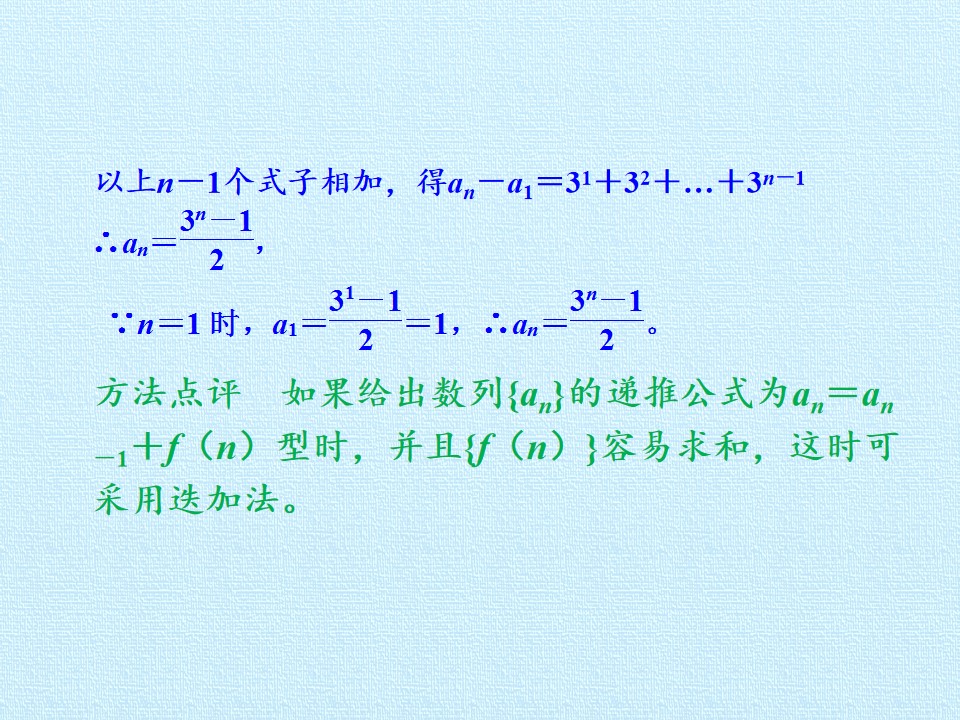 以上n－1个式子相加，得aₙ－a₁＝3¹＋3²＋…＋3ⁿ⁻¹
∴aₙ＝(3ⁿ－1)/2，
∵n＝1 时，a₁＝(3¹－1)/2＝1，∴aₙ＝(3ⁿ－1)/2。
方法点评　如果给出数列{aₙ}的递推公式为aₙ＝aₙ
₋₁＋f（n）型时，并且{f（n）}容易求和，这时可
采用迭加法。